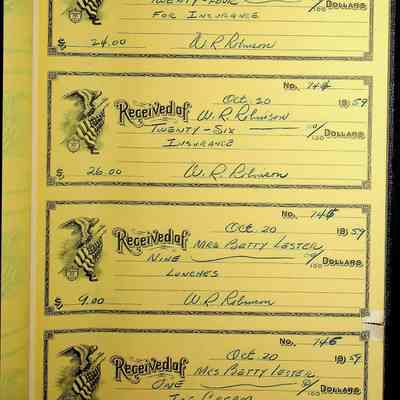 TWENTY-FOUR 100 DOLLARS
FOR INSURANCE
$ 24.00 W.R. Robinson
No. 145
Oct 20 1959
Received of W.R. Robinson
TWENTY-SIX 00/100 DOLLARS
INSURANCE
$ 26.00 W.R. Robinson
No. 146
Oct 20 1959
Received of MRS BETTY LESTER
NINE 00/100 DOLLARS
LUNCHES
$ 9.00 W.R. Robinson
No. 146
Oct 20 1959
Received of MRS BETTY LESTER
ONE 00/100 DOLLARS
ICE CREAM